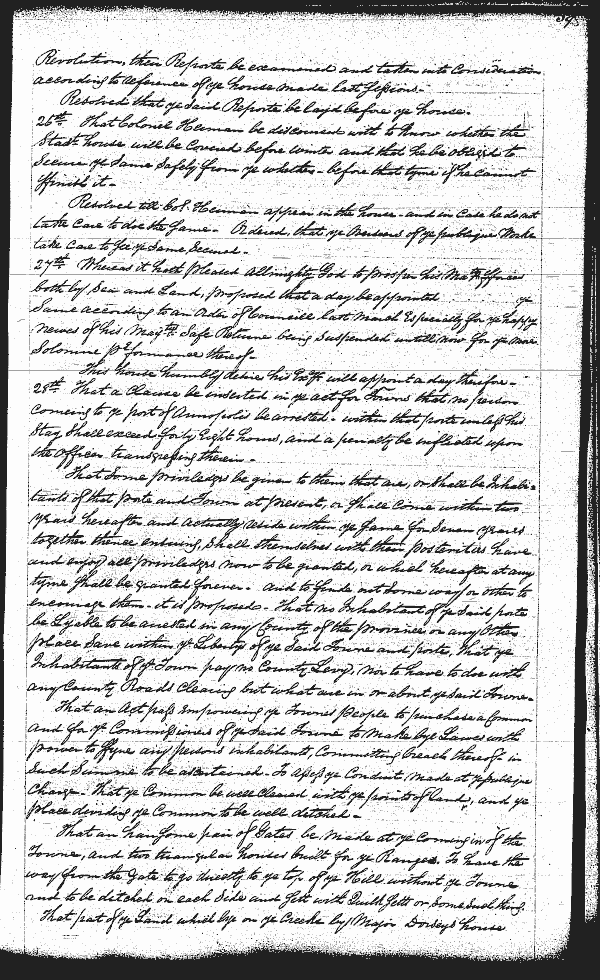 Revolution, their Reporte be examened and taken into Consideration
according to reference of ye house made last Sessions.
Resolved that ye said Reporte be layd before ye house.
26th That Colonel Herman be discoursed with to know whether the
Stadt house will be Covered before winter and that he be obliged to
Secure ye Same Safely from ye whether before that tyme if he cannot
ffinish it.
Resolved till Col. Herman appear in the house and in Case he do not
take Care to doe the Same. Ordered, that ye Overseers of ye publique Worke
take Care to See ye Same Secured.
27th Whereas it hath pleased Allmighty God to prosper his Matys fforces
both by Sea and Land, proposed that a day be appointed ye
Same according to an Order of Councill last March Especially for ye happy
newes of his Maytys Safe Returne being Suspended untill now for ye more
Solomne pformance thereof.
This house humbly desire his Exy will appoint a day therefor.
28th That a Clause be inserted in ye act for Towns that no person
comeing to ye port of Annapolis be arrested within that porte unless his
Stay Shall exceed forty Eight hours, and a penalty be inflicted upon
the Officer transgressing therein.
That Some priviledges be given to them that are, or shall be Inhabi-
tants of that Porte and Town at present, or Shall Come within two
years hereafter and actually reside within ye same for Seven years
together thence ensuing, Shall themselves with their posterities have
and enjoy all priviledges now to be granted, or which hereafter at any
tyme Shall be granted forever. And to finde out Some way or other to
encourage them it is proposed That no Inhabitant of ye Said porte
be Lyable to be arrested in any County of the Province or any Other
place Save within ye Liberty of ye Said Towne and porte, That ye
Inhabitants of ye Town pay no County Levy, nor to have to doe with
any County Roads Clearing but what are in or about ye said Towne.
That an Act pass Empowering ye Townes People to purchase a Common
and for ye Commissioners of ye Said Towne to Make bye Lawes with
power to ffyne any persons inhabitant, Committing breach thereof in
Such Summe to be ascertained. To Assess ye Conduit, made at ye publique
Charge. That ye Common be well Cleared with ye points of Land, and ye
place dividing ye Common to be well detched.
That an handsome pair of Gates be made at ye Coming in of the
Towne, and two triangular houses built for ye Rangers. To have the
way from the Gate to go directly to ye top of ye Hill without ye Towne
and to be detched on each Side and Sett with Quick Setts or Some Such thing.
That part of ye Land which lye on ye Creeke by Major Dorseys house